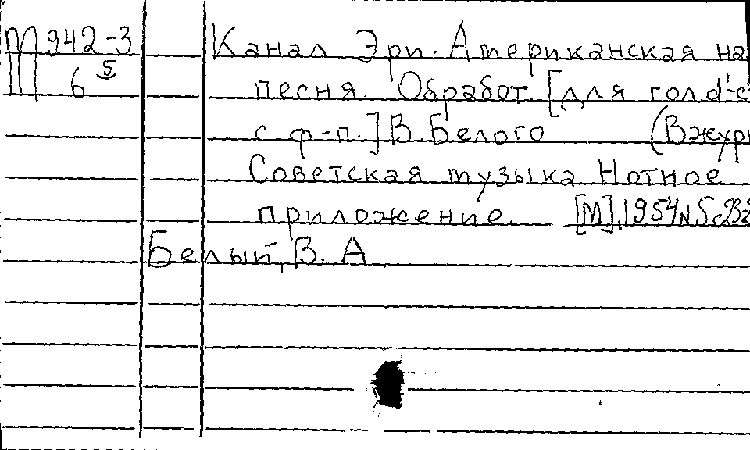 М 942-3 Канал Эри. Американская на
6 5 песня. Обработ. [для голоса
с ф-п.] В. Белого (В журн
Советская музыка Нотное
приложение. [М], 1954 № 5
Белый, В. А